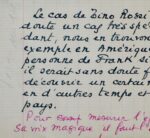 Le cas de Tino Rossi
doute un cas très spé
dant, nous en trouvon
exemple en Amérique
personne de Frank Si
il serait sans doute f
découvrir un certain
en d'autres temps et
pays.
Pour mesurer l'
Sa voix magique il faut l'